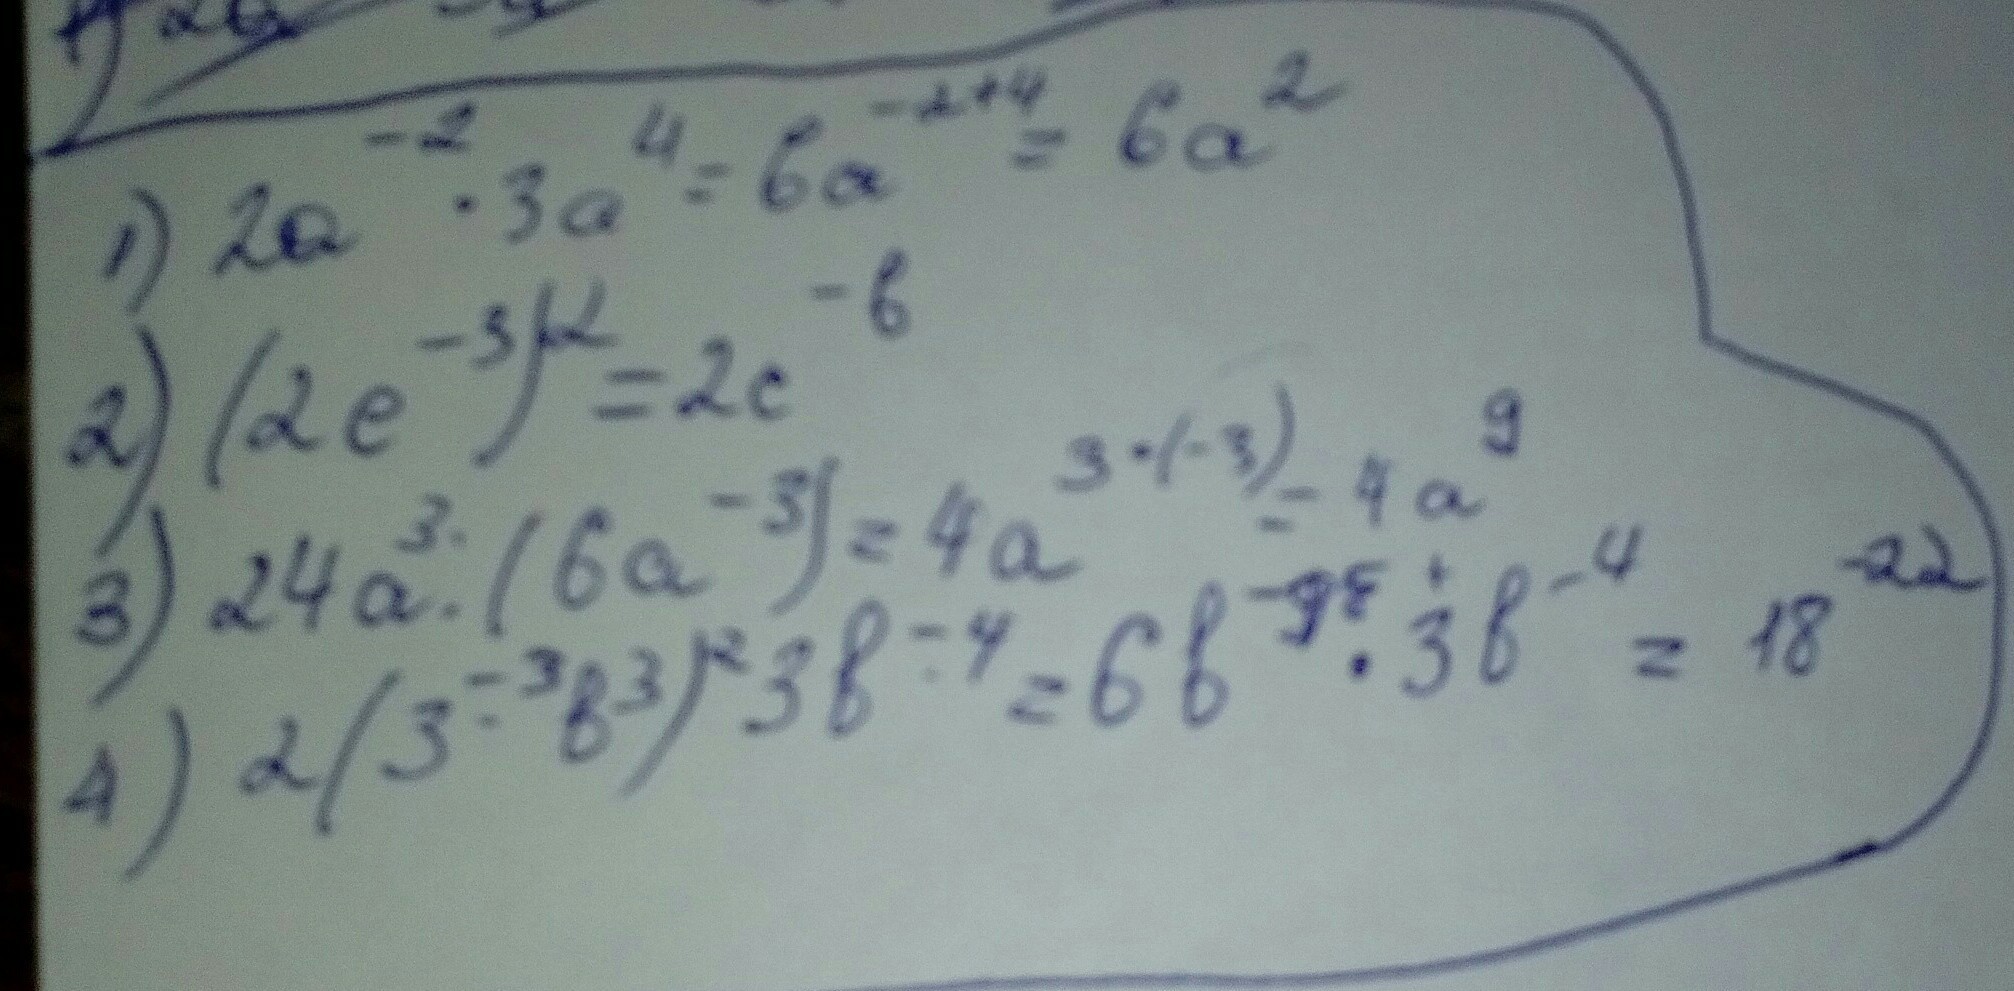 1) 2a⁻² · 3a⁴ = 6a⁻²⁺⁴ = 6a²
2) (2e⁻³)² = 2e⁻⁶
3) 24a³ · (6a⁻³) = 4a³·⁽⁻³⁾ = 4a⁹
4) 2(3⁻³b³)² 3b⁻⁴ = 6b · 3b⁻⁴ = 18⁻²²